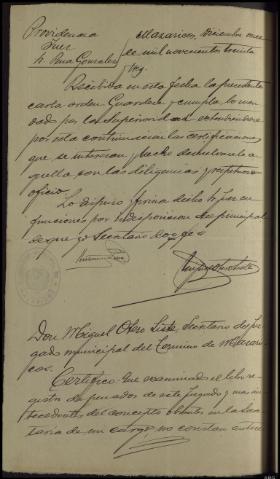 Providencia
Juez
Sr. Pena Gonzalez
Mazaricos, Diciembre once
de mil novecientos treinta
y
Recibida en esta fecha la precedente
carta orden Guardese y cumpla lo man
dado por la Superioridad
por esta continuacion las certificaciones
que se interesan y hecho devuelvase a
quella con las diligencias y
oficio
Lo dispuso y firma dicho Sr. Juez en
funciones por indisposicion del principal
de que yo Secretario doy fe
Don Miguel Otero Liste, Secretario del juz
gado municipal del termino de Mazari
cos.
Certifico: Que examinado el libro re
gistro de penados de este Juzgado y mas an
tecedentes del concepto obrantes en la Secre
taria de mi cargo no constan